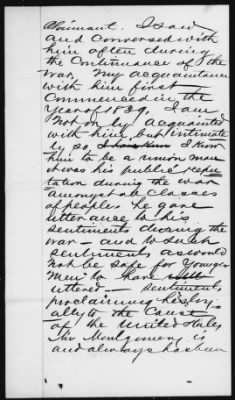 Claimant. I saw
and conversed with
him often during
the Continuance of the
war, My acquaintance
with him first
Commenced in the
year of 1829. I am
not only acquainted
with him, but intimate
ly so, I know
him to be a union man
it was his public repu
tation during the war
amongst all Classes
of people. he gave
utterance to his
sentiments during the
war — and to such
sentiments as would
not be safe for Younger
Men to have
uttered — sentiments
proclaiming his loy
alty to the Cause
of the United States
Mr Montgomery is
and always has been